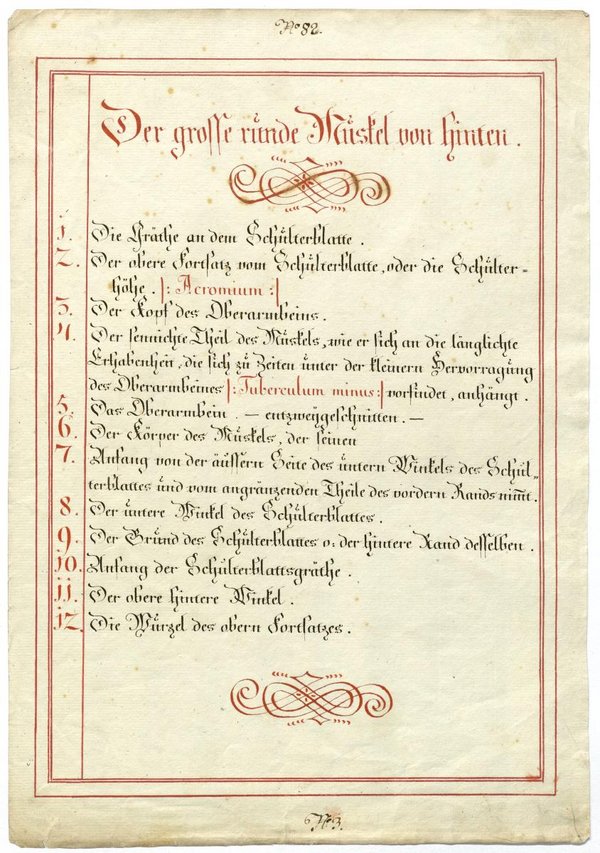 No 82.
Der grosse runde Muskel von hinten.
1. Die Gräthe an dem Schulterblatte.
2. Der obere Fortsatz vom Schulterblatte, oder die Schulter=
höhe. |: Acromium :|
3. Der Kopf des Oberarmbeins.
4. Der sennichte Theil des Muskels, wie er sich an die länglichte
Erhabenheit, die sich zu Zeiten unter der kleinern Hervorragung
des Oberarmbeines |: Tuberculum minus :| vorfindet, anhängt.
5. Das Oberarmbein. — entzweygeschnitten. —
6. Der Körper des Muskels, der seinen
7. Anfang von der äussern Seite des untern Winkels des Schul=
terblattes und vom angränzenden Theile des vordern Rands nimmt.
8. Der untere Winkel des Schulterblattes.
9. Der Grund des Schulterblattes o: der hintere Rand desselben.
10. Anfang der Schulterblattsgräthe.
11. Der obere hintere Winkel.
12. Die Wurzel des obern Fortsatzes.
No 3.